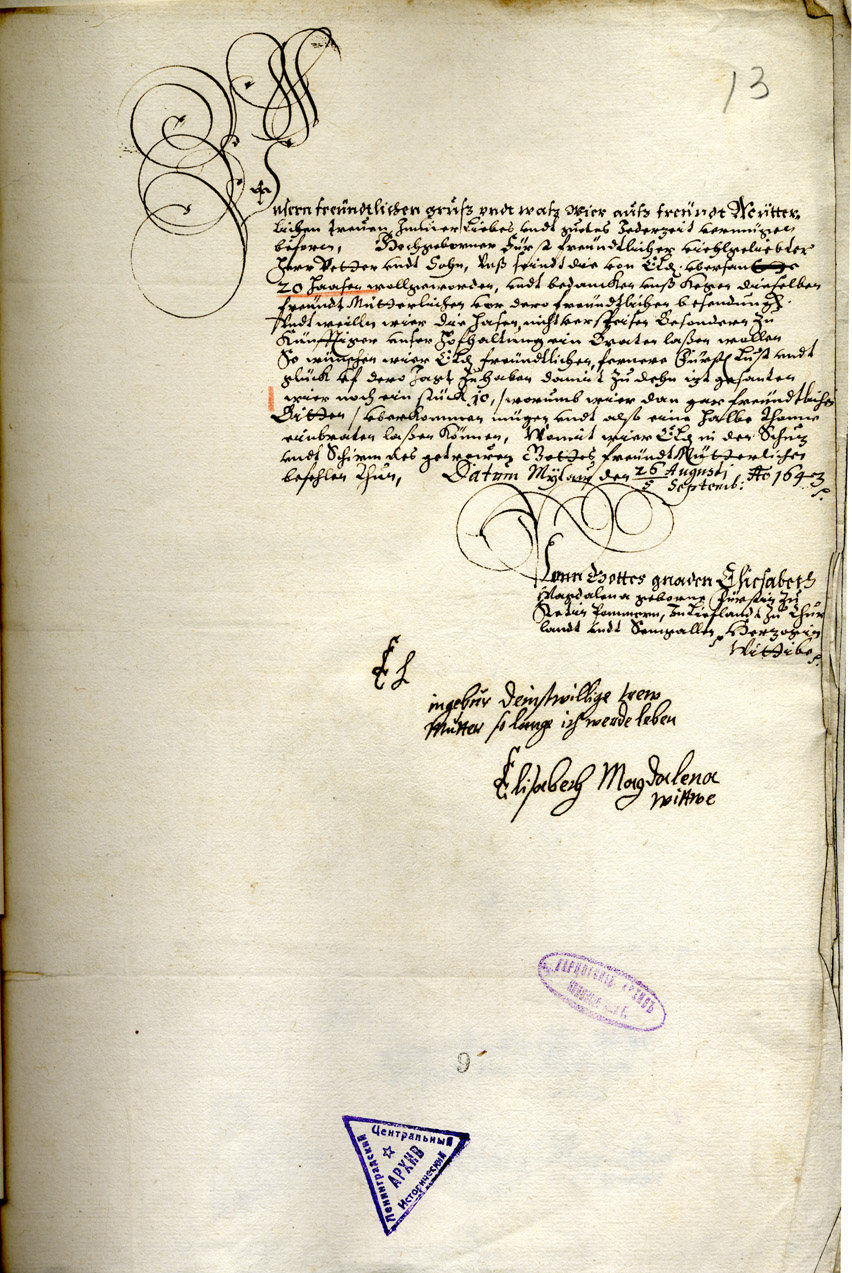 13
Unsern freundtlichen gruß undt waß wier auß freundt Mütter
lichen treuen Immer Liebes undt gutes Jederzeit vermügen
beforn, Hochgeborner Fürst freundtlicher vielgeliebter
Herr Vetter undt Sohn, Unß seindt die von Eld. ubersandte
20 Haasen woll geworden, undt bedancken unß kegen dieselben
freundt Mütterlichen vor dero freundtlichen besendung.
Undt weilln wier die hasen, nicht verspeisen besondern zu
Künfftiger unser Hofhaltung ein Braten laßen wollen
So wünschen wier Eld freundtlichen, fernere Lust undt
glück uf dero Jagt zuhaben damit zu dehn itzt gesanten
wier noch ein stück 10, /:worumb wier dan gar freundtlichen
Bitten/ uberkommen mügen undt alß eine halbe Thonne
einbraten laßen können, Womit wier Eld in den Schutz
undt Schirm des getreuen Gottes freundt Mütterlichen
befehlen thun, Datum Mytow den 26 Augusti
5 Septemb: Ao 1643.
Vonn Gottes gnaden Eliesabeth
Magdalena geborne Fürstin zu
Stetin Pommern, zu Liefflandt zu Chur
landt undt Semgallen Herzogin
Wittibe
E L
ingebür deinstwillige trew
Mutter so lange ich werde leben
Elisabeth Magdalena
wittwe
АРХИВЪ
9
Центральный
Ленинградский
АРХИВ
Исторический